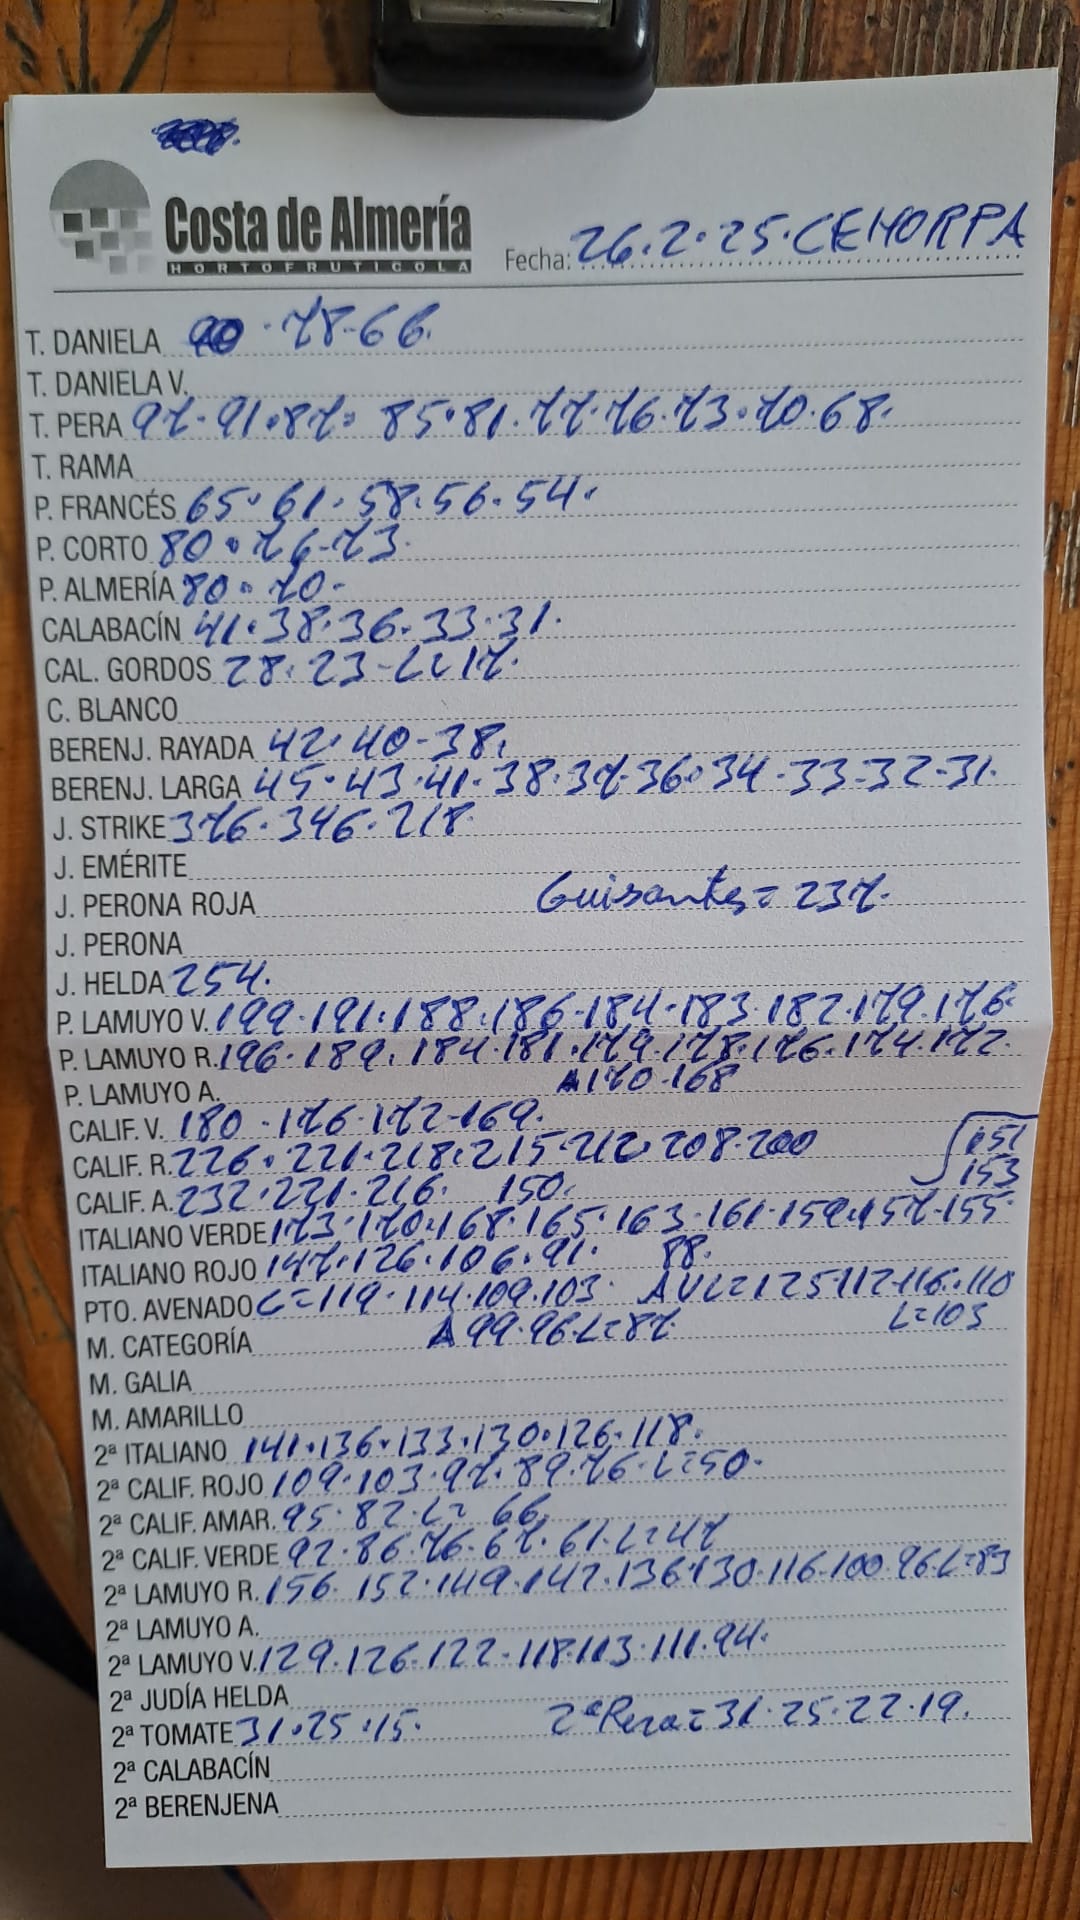 Costa de Almería
HORTOFRUTICOLA
Fecha: 26.2.25.CEHORPA
T. DANIELA · 78-66.
T. DANIELA V.
T. PERA 97·91·87· 85·81·77·76·73·70·68.
T. RAMA
P. FRANCÉS 65·61·58·56·54.
P. CORTO 80·76-73.
P. ALMERÍA 80·70-
CALABACÍN 41·38·36·33·31.
CAL. GORDOS 28·23-L=17.
C. BLANCO
BERENJ. RAYADA 42·40-38.
BERENJ. LARGA 45·43·41·38·37·36·34·33-32-31.
J. STRIKE 376·346·218.
J. EMÉRITE
J. PERONA ROJA Guisantes=237.
J. PERONA
J. HELDA 254.
P. LAMUYO V. 199·191·188·186·184·183·182·179·176·
P. LAMUYO R. 196·189·184·181·179·178·176·174·172.
P. LAMUYO A. 170·168
CALIF. V. 180-176·172-169.
CALIF. R. 226·221·218·215-212·208·200 151
153
CALIF. A. 232·221·216. 150.
ITALIANO VERDE 173·170·168·165·163·161·159·157-155·
ITALIANO ROJO 147·126·106·91. 88.
PTO. AVENADO L=119·114·109·103 AVL=125·112·116·110
M. CATEGORÍA 99·96·L=87 L=103
M. GALIA
M. AMARILLO
2ª ITALIANO 141·136·133·130·126·118.
2ª CALIF. ROJO 109·103·97·89·76·L=50.
2ª CALIF. AMAR. 95·82·L=66.
2ª CALIF. VERDE 92·86·76·67·61·L=47
2ª LAMUYO R. 156·152·149·142·136·130·116·100·96·L=83
2ª LAMUYO A.
2ª LAMUYO V. 129·126·122-118·113·111·94.
2ª JUDÍA HELDA
2ª TOMATE 31·25·15. 2ªPera=31·25-22·19.
2ª CALABACÍN
2ª BERENJENA